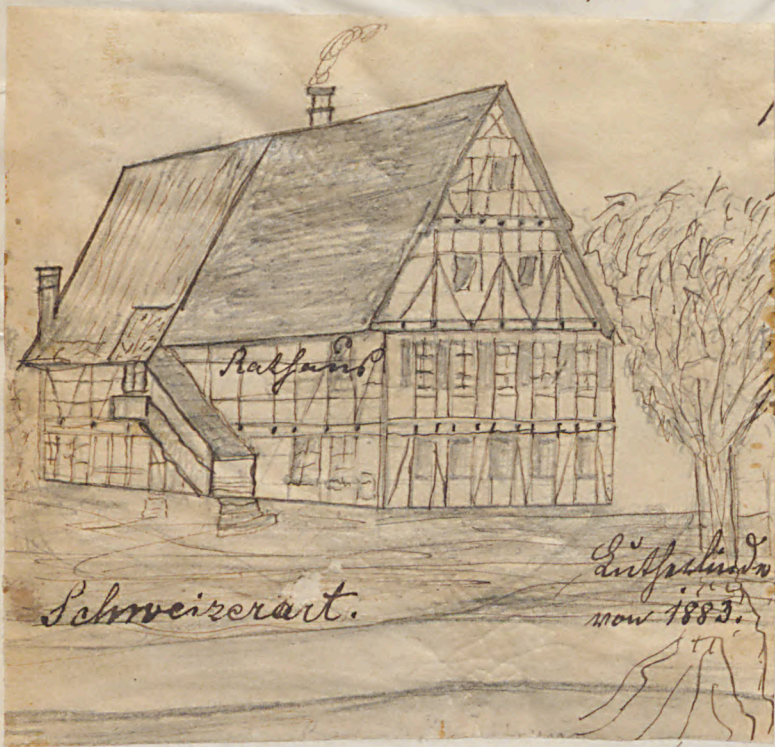 Rathaus
Schweizerart.
Lutherlinde
von 1883.